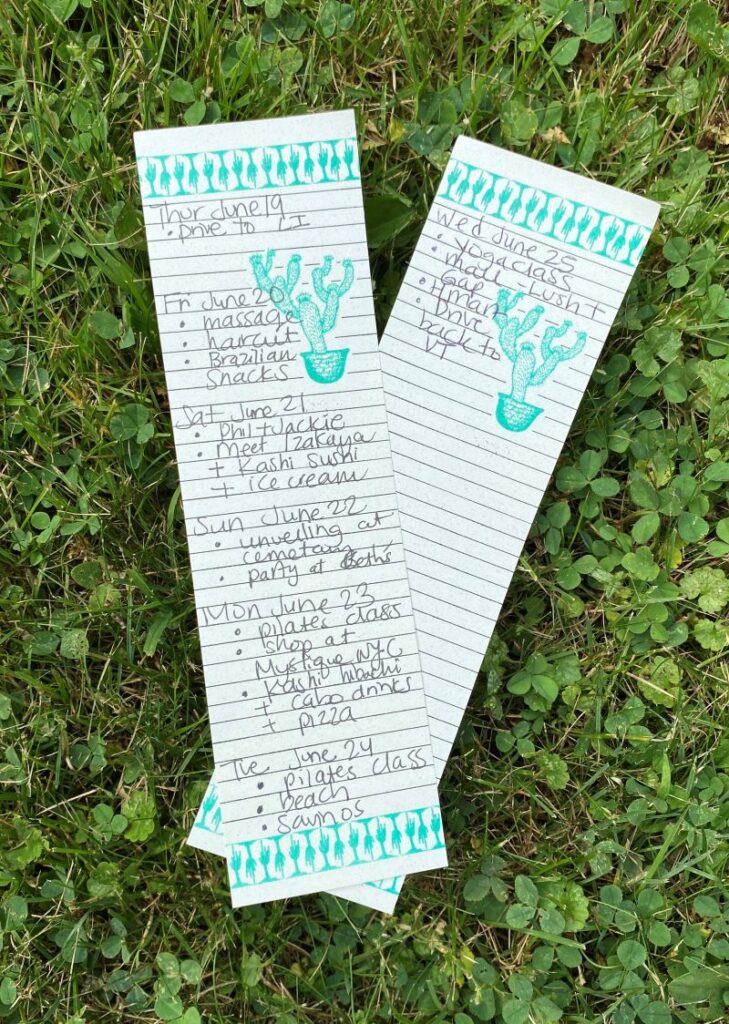 Thur June 19
• Drive to LI
Fri June 20
• massage
• haircut
• Brazilian
snacks
Sat June 21
• Phil + Jackie
• Meet Izakaya
+ Kashi Sushi
+ ice cream
Sun June 22
• unveiling at
cemetary
• party at Beth's
Mon June 23
• pilates class
• shop at
Mystique NYC
• Kashi hibachi
+ cabo drinks
+ pizza
Tue June 24
• pilates class
• beach
• Saynos
Wed June 25
• yoga class
• mall - Lush +
Gap
• Drive
back to
VT